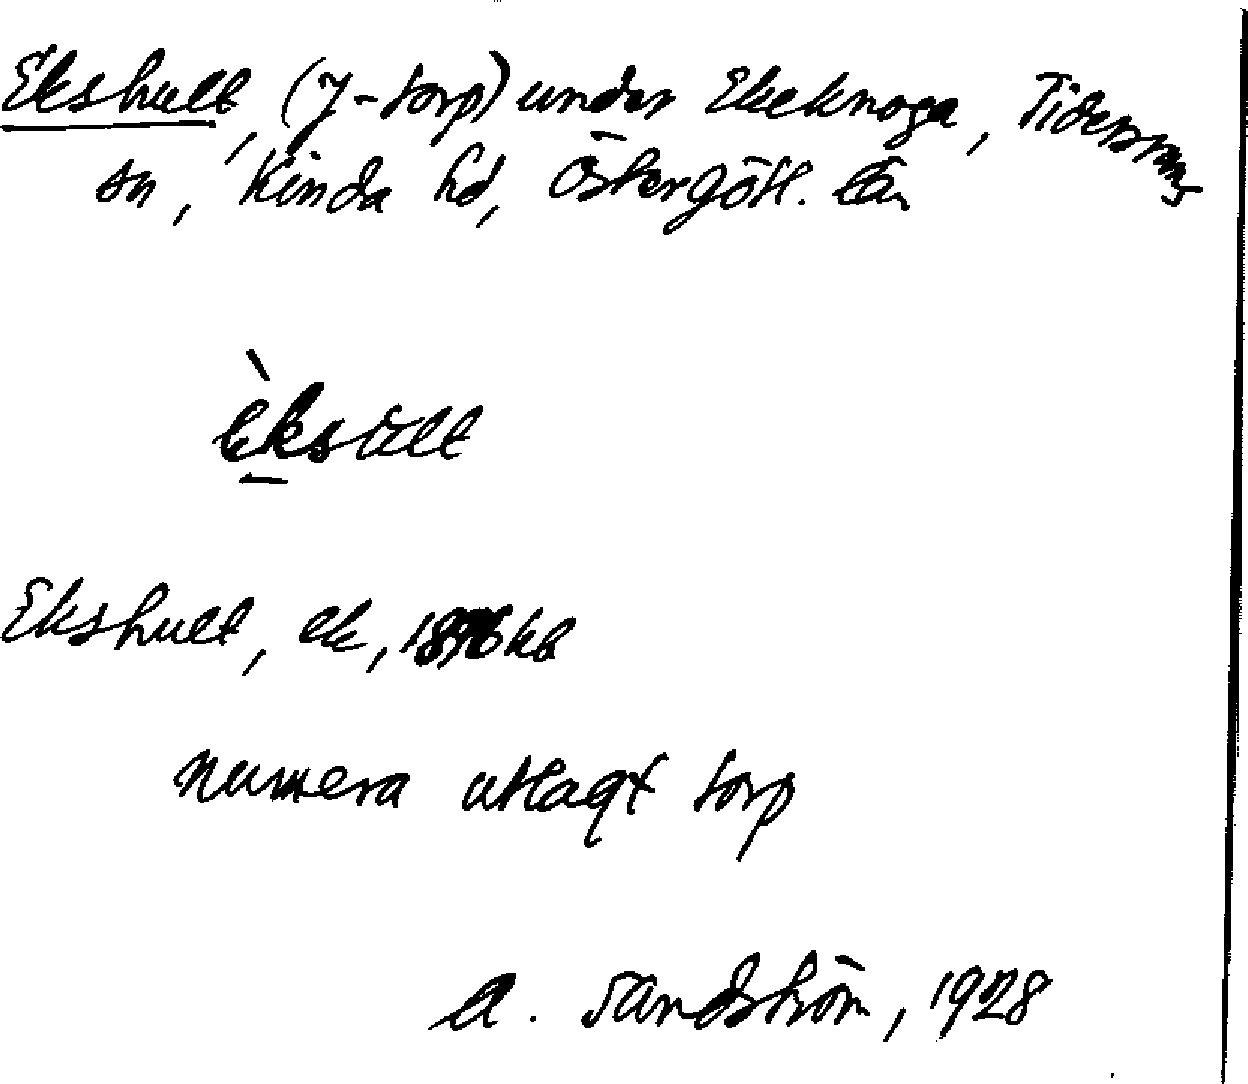 Ekshult, (f-torp) under Ekeknoga, Tidersrums
sn, Kinda hd, Östergötl. län
èksult
Ekshult, ek, kb
numera utlagt torp
A. Sandström, 1928